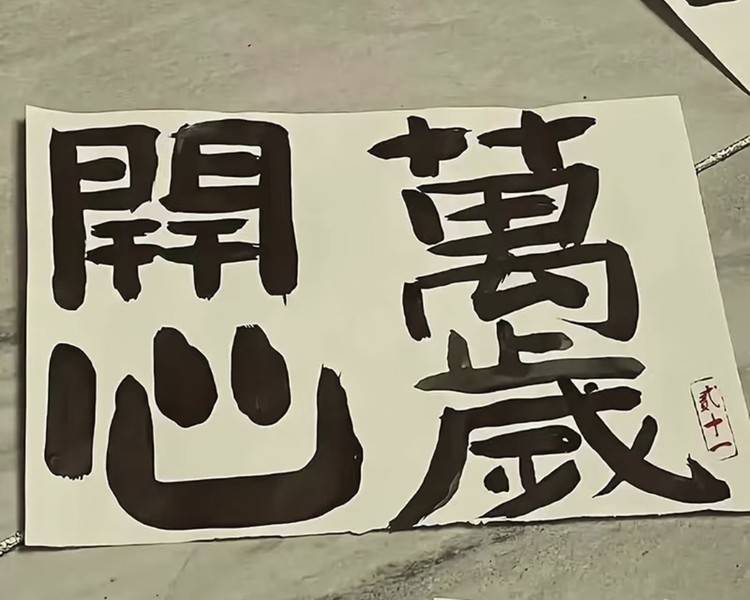 萬歲
開心
貳十一